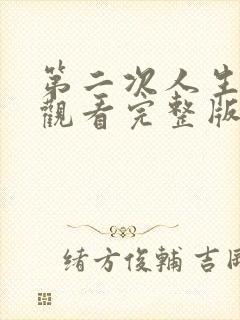 第二次人生
觀看完整版
緒方俊輔 吉岡